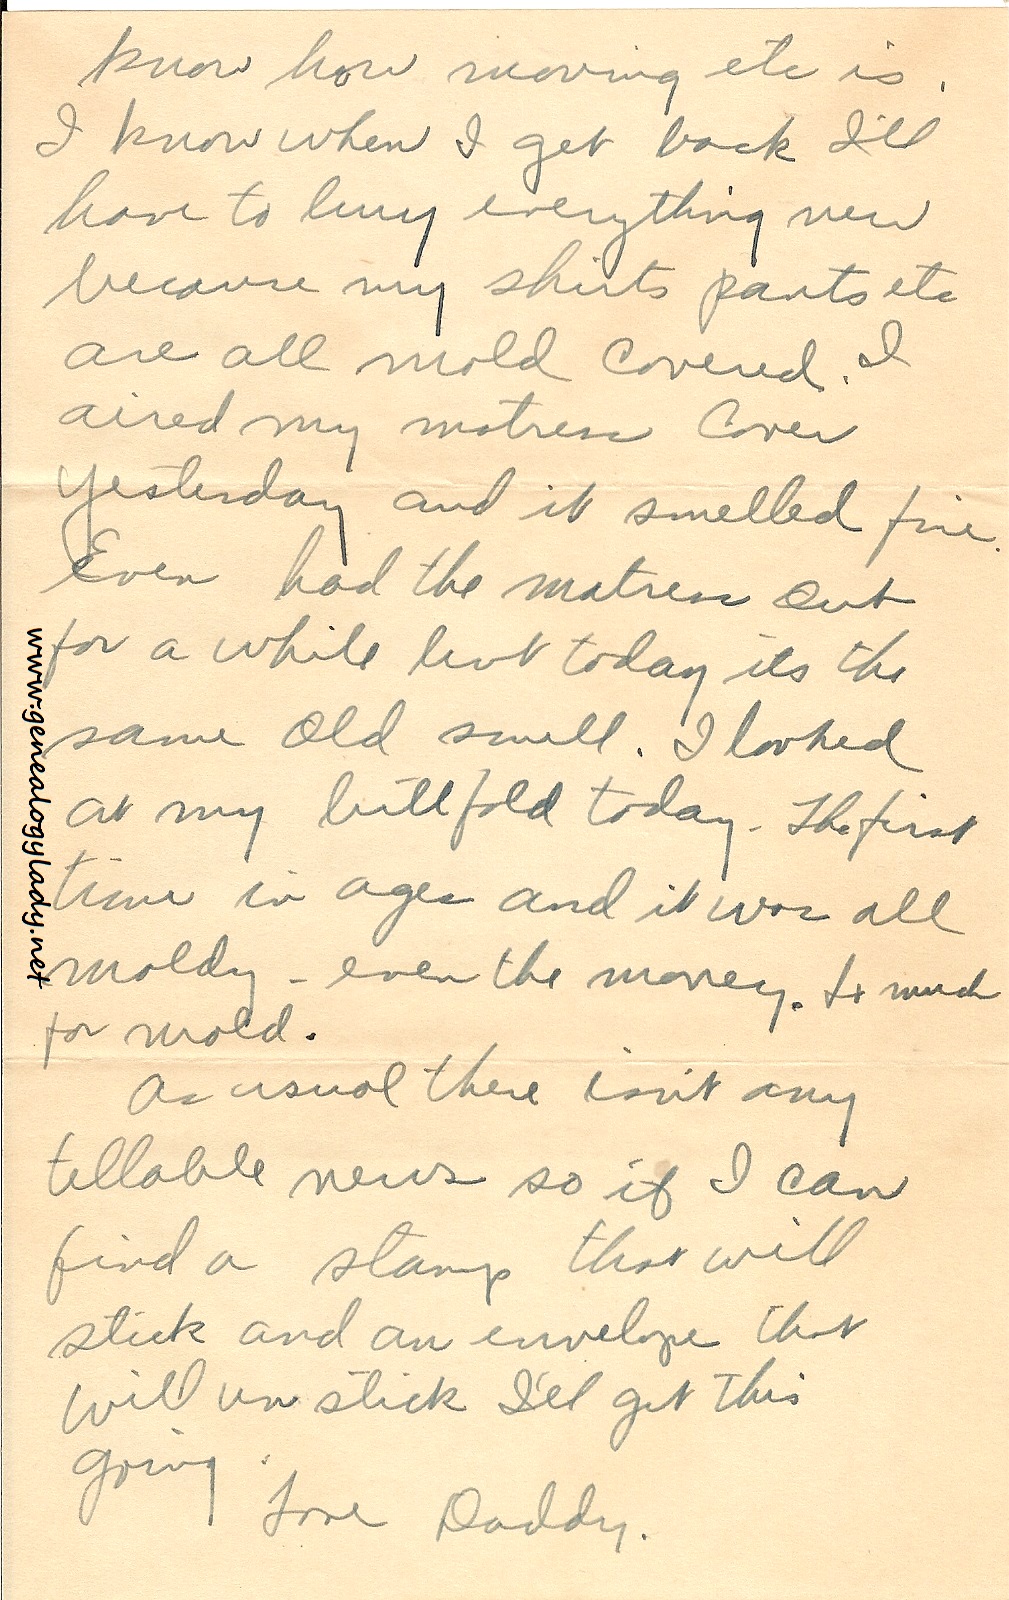 know how moving etc is.
I know when I get back I'll
have to buy everything new
because my shirts pants etc
are all mold covered. I
aired my matress cover
yesterday and it smelled fine.
Even had the matress out
for a while but today its the
same old smell. I looked
at my billfold today - the first
time in ages and it was all
moldy - even the money. So much
for mold.
As usual there isn't any
tellable news so if I can
find a stamp that will
stick and an envelope that
will un stick I'll get this
going.
Love Daddy.
www.genealogylady.net